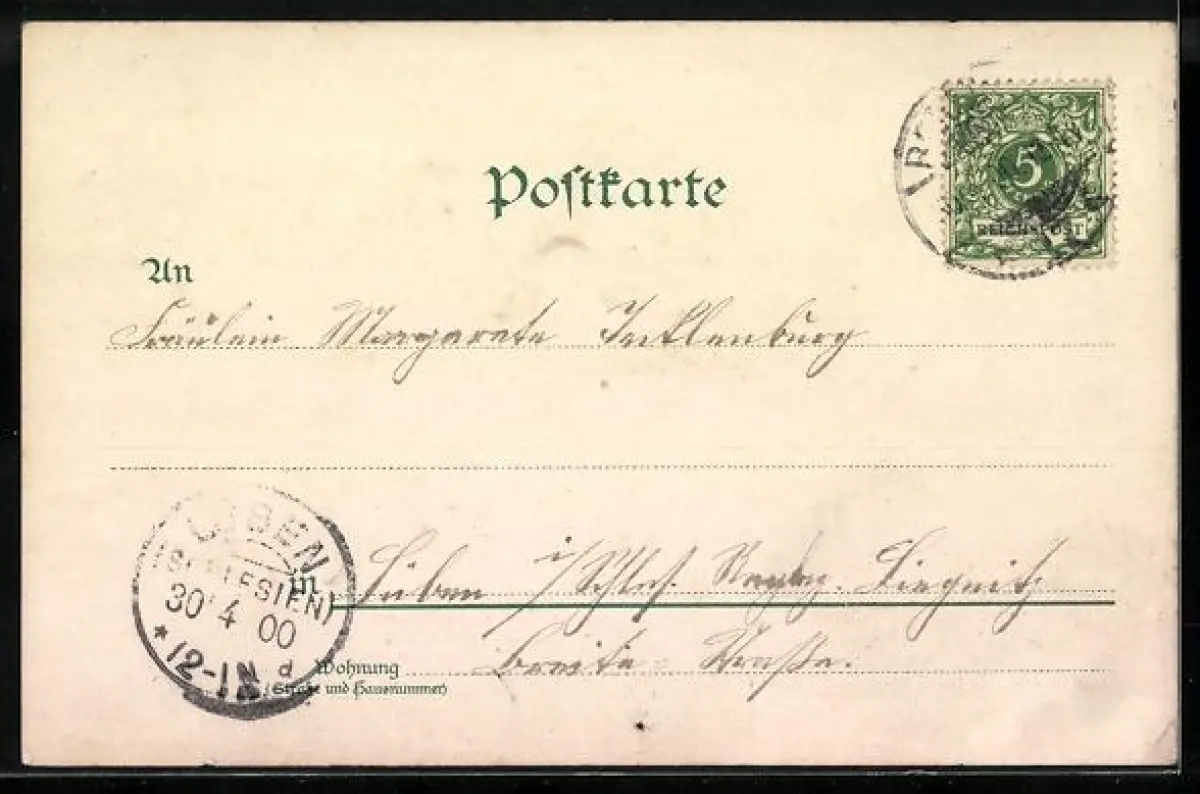 Postkarte
5
REICHSPOST
An
Fräulein Margarete Tecklenburg
LÜBEN
(SCHLESIEN)
30 4 00
* 12-1N d
in Lüben i/Schles. Liegnitz
Wohnung Breite-Straße.
(Straße und Hausnummer)